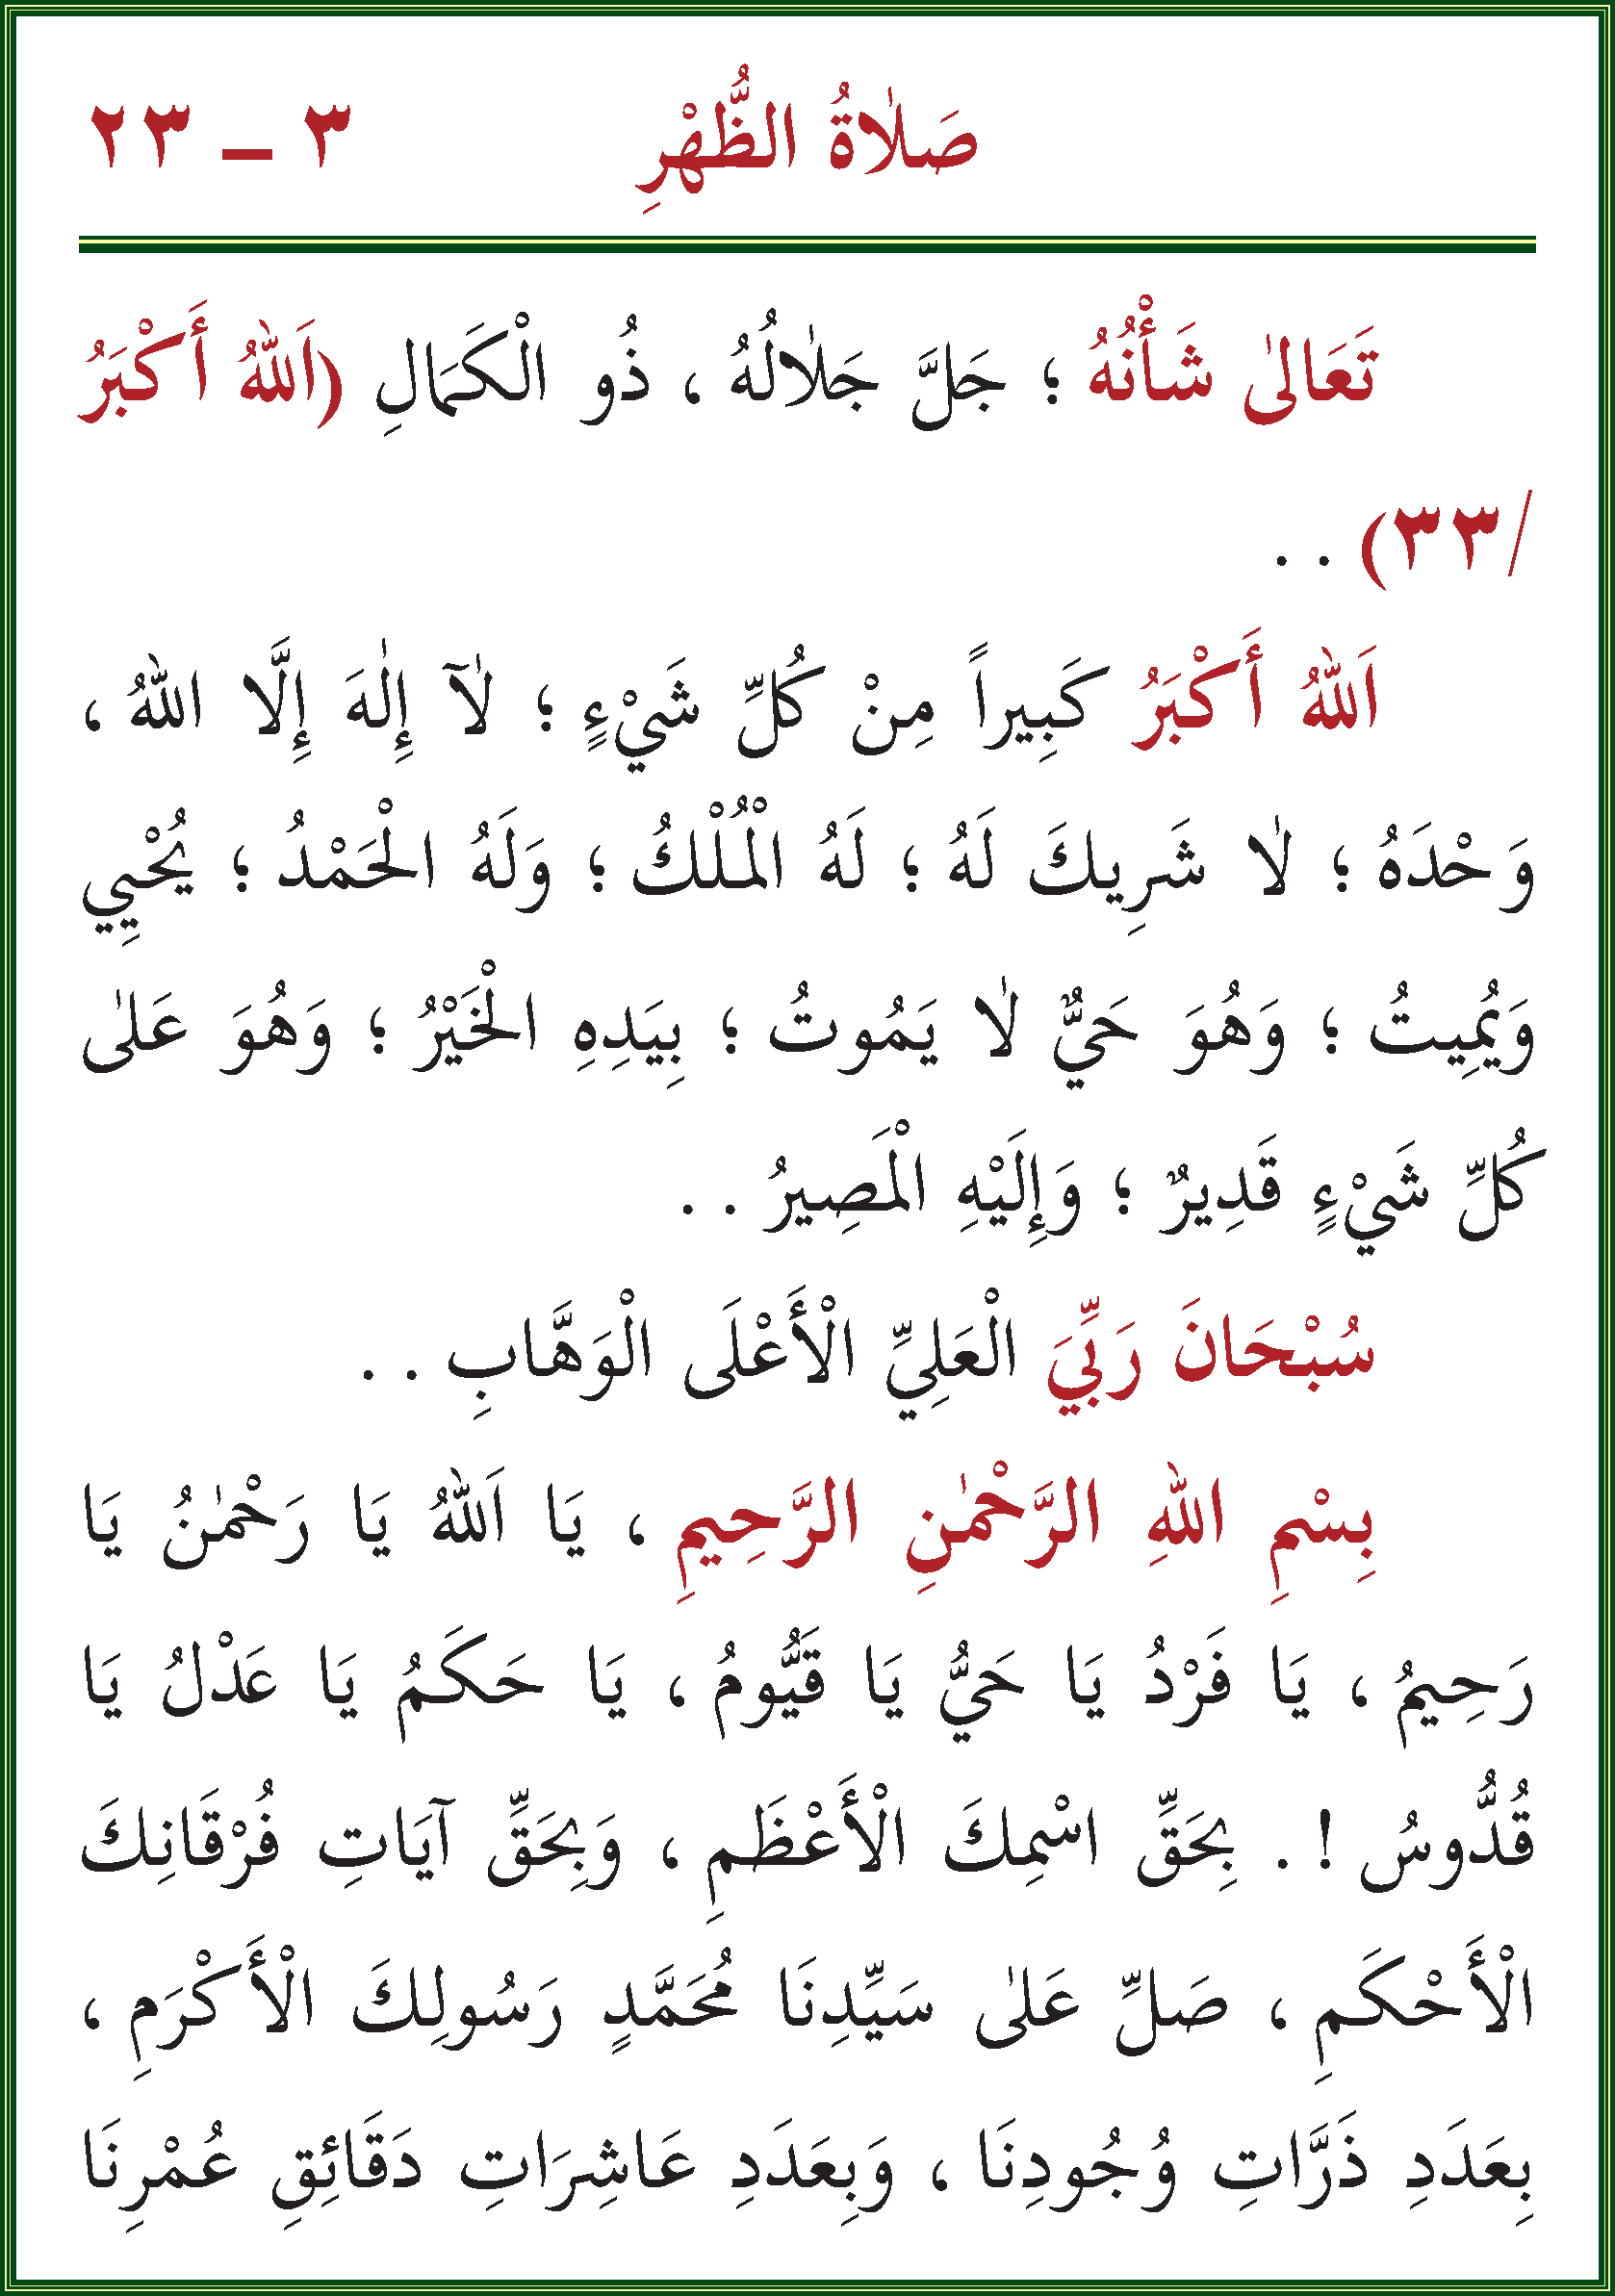 صَلٰاةُ الظُّهْرِ ٣ – ٢٣
تَعَالىٰ شَأْنُهُ ؛ جَلَّ جَلٰالُهُ ، ذُو الْكَمَالِ (اَللهُ أَكْبَرُ
/٣٣) . .
اَللهُ أَكْبَرُ كَبِيراً مِنْ كُلِّ شَيْءٍ ؛ لٰآ إِلٰهَ إِلَّا اللهُ ،
وَحْدَهُ ؛ لٰا شَرِيكَ لَهُ ؛ لَهُ الْمُلْكُ ؛ وَلَهُ الْحَمْدُ ؛ يُحْيِي
وَيُمِيتُ ؛ وَهُوَ حَيٌّ لٰا يَمُوتُ ؛ بِيَدِهِ الْخَيْرُ ؛ وَهُوَ عَلىٰ
كُلِّ شَيْءٍ قَدِيرٌ ؛ وَإِلَيْهِ الْمَصِيرُ . .
سُبْحَانَ رَبِّيَ الْعَلِيِّ الْأَعْلَى الْوَهَّابِ . .
بِسْمِ اللهِ الرَّحْمٰنِ الرَّحِيمِ ، يَا اَللهُ يَا رَحْمٰنُ يَا
رَحِيمُ ، يَا فَرْدُ يَا حَيُّ يَا قَيُّومُ ، يَا حَكَمُ يَا عَدْلُ يَا
قُدُّوسُ ! . بِحَقِّ اسْمِكَ الْأَعْظَمِ ، وَبِحَقِّ آيَاتِ فُرْقَانِكَ
الْأَحْكَمِ ، صَلِّ عَلىٰ سَيِّدِنَا مُحَمَّدٍ رَسُولِكَ الْأَكْرَمِ ،
بِعَدَدِ ذَرَّاتِ وُجُودِنَا ، وَبِعَدَدِ عَاشِرَاتِ دَقَائِقِ عُمْرِنَا